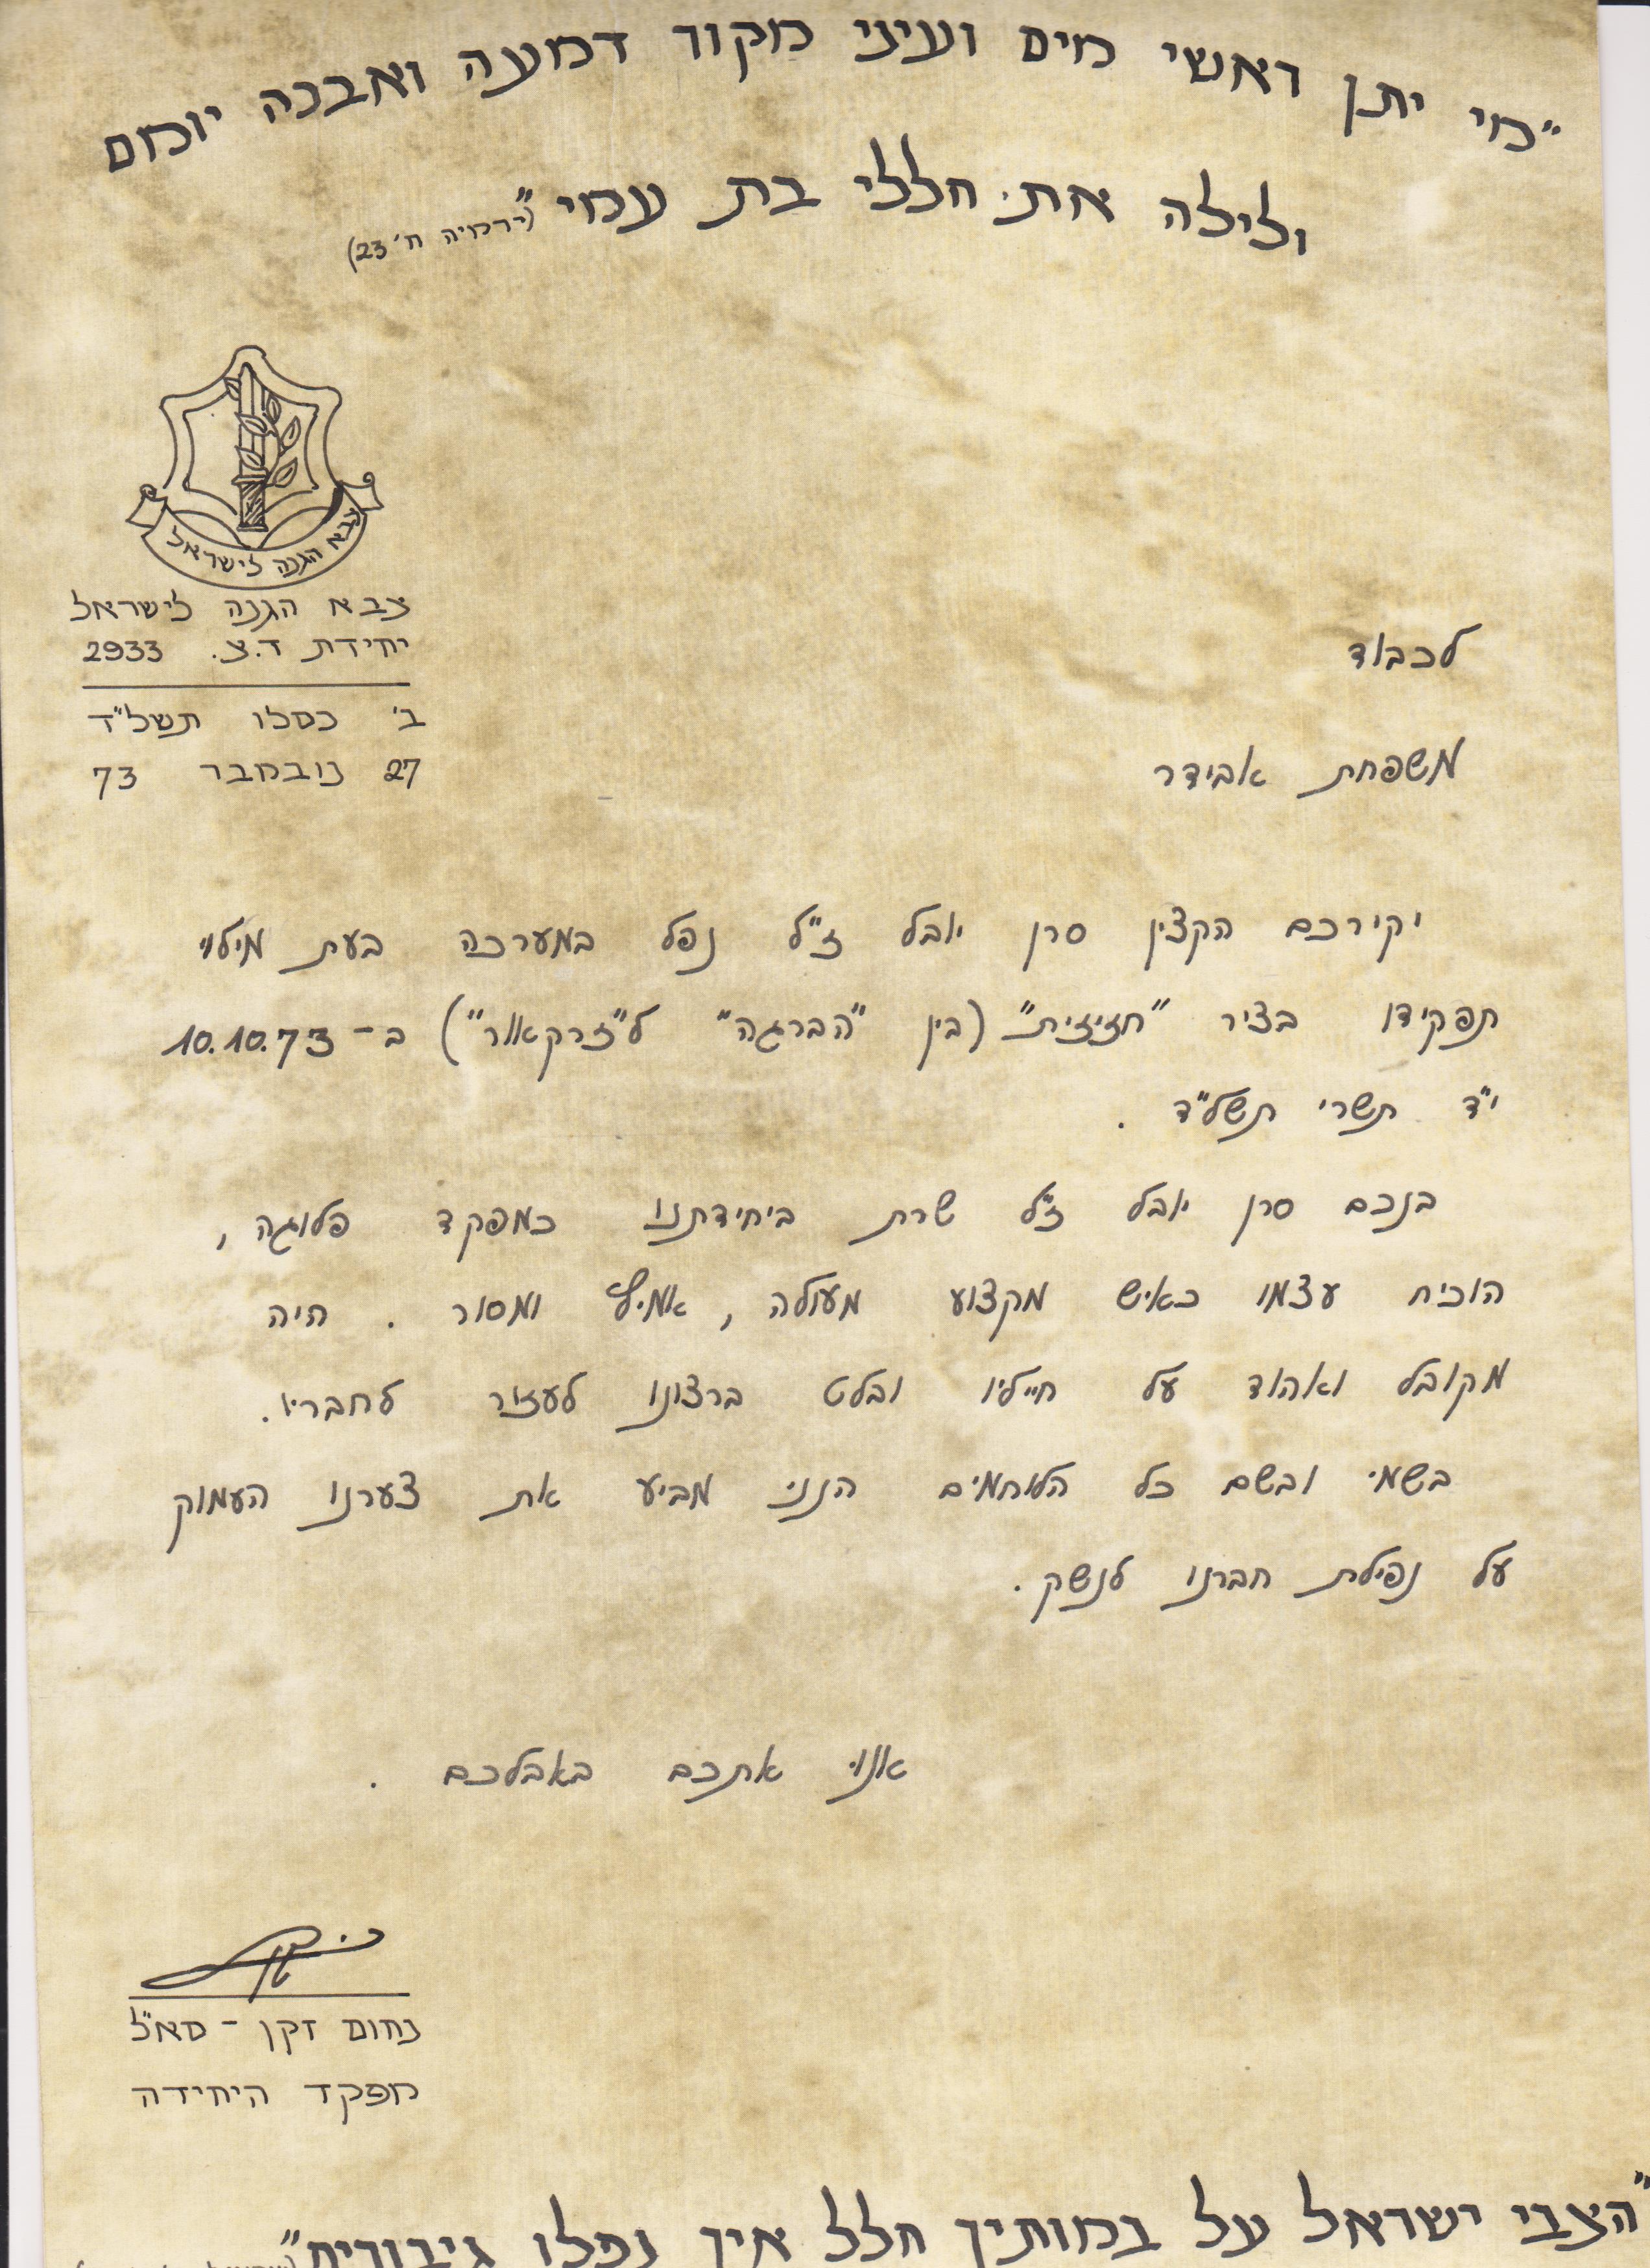 "מי יתן ראשי מים ועיני מקור דמעה ואבכה יומם
ולילה את חללי בת עמי" (ירמיה ח' 23)
צבא הגנה לישראל
צבא הגנה לישראל
יחידת ד.צ. 2933
ב' כסלו תשל"ד
27 נובמבר 73
לכבוד
משפחת אבידר
יקירכם הקצין סרן יובל ז"ל נפל במערכה בעת מילוי
תפקידו בציר "חזיזית" (בין "הברגה" ל"זרקאור") ב- 10.10.73
י"ד תשרי תשל"ד .
בנכם סרן יובל ז"ל שרת ביחידתנו כמפקד פלוגה ,
הוכיח עצמו כאיש מקצוע מעולה , אמיץ ומסור . היה
מקובל ואהוד על חייליו ובלט ברצונו לעזור לחבריו .
בשמי ובשם כל הלוחמים הנני מביע את צערנו העמוק
על נפילת חברנו לנשק .
אנוי אתכם באבלכם .
נחום זקן - סא"ל
מפקד היחידה
"הצבי ישראל על במותיך חלל איך נפלו גיבורים"